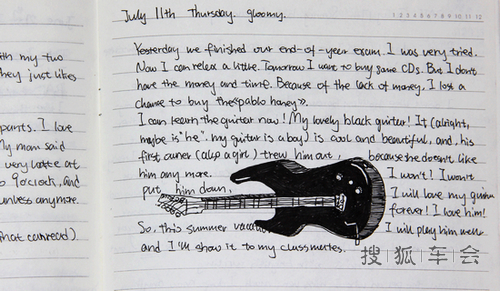 July 11th Thursday. gloomy.
1 2 3 4 5 6 7 8 9 10 11 12
Yesterday we finished our end-of-year exam. I was very tried.
Now I can relax a little. Tomorrow I want to buy some CDs. But I don't
have the money and time. Because of the lack of money, I lost a
chance to buy the
I can learn the guitar now! My lovely black guitar! It (alright,
maybe is "he". my guitar is a boy) is cool and beautiful, and, his
first owner (also a girl) trew him out, because she doesn't like
him any more. I won't! I won't
put him down, I will love my
forever! I love him!
So, this summer I will play him well
and I'll show it to my classmates.
th my two
they just likes
pants. I love
My mam said
very at
9 o'clock, and
unless anymore.
搜狐车会